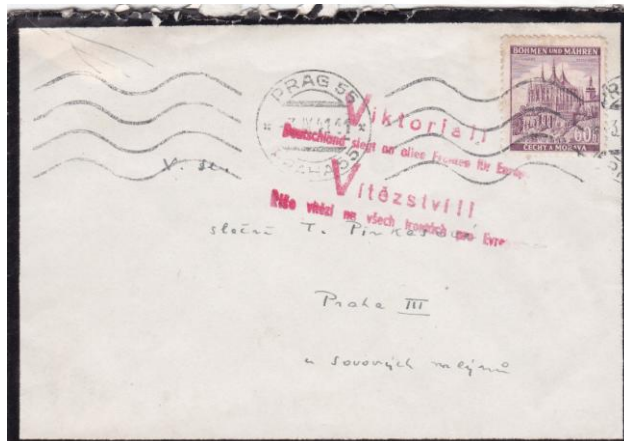 BÖHMEN UND MÄHREN
60h
ČECHY A MORAVA
PRAG 55
PRAHA 55
Viktoria!!
Deutschland siegt an allen Fronten für Europa
Vítězství!!
Říše vítězí na všech frontách pro Evropu
V. sl.
slečna T.
Praha III
u sovových mlýnů